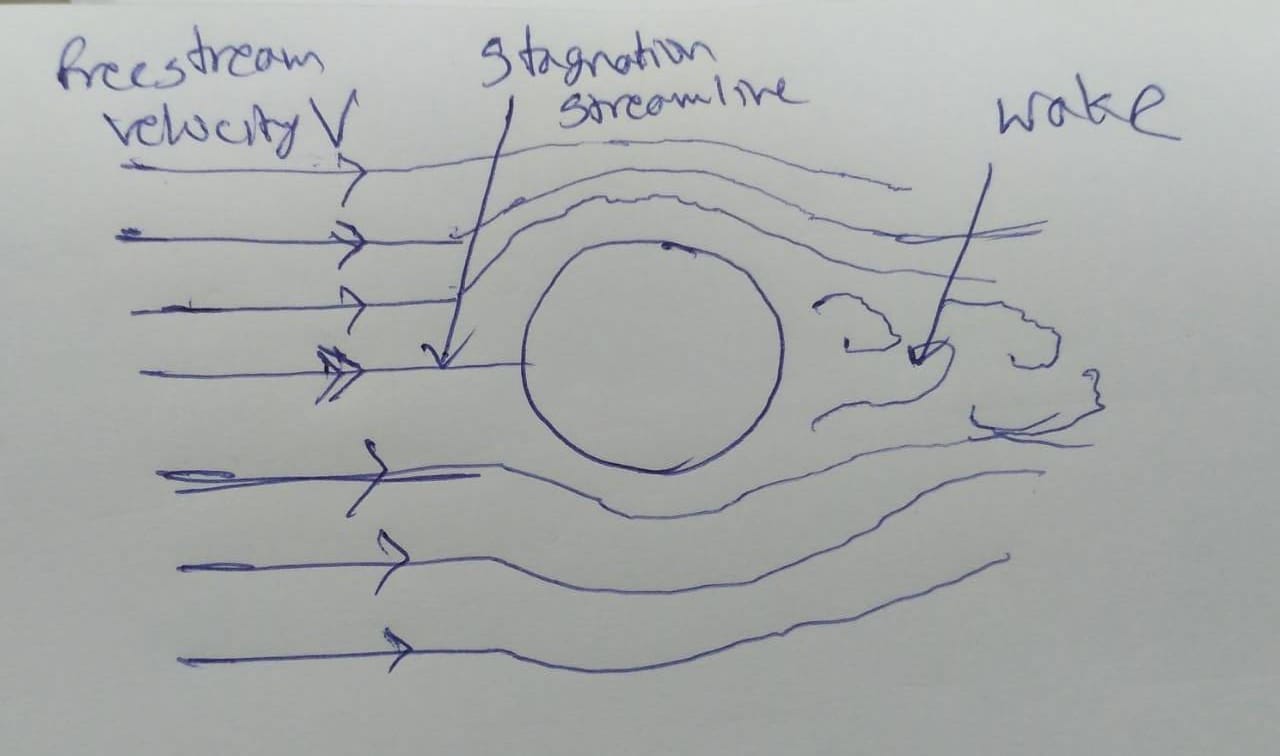 freestream
velocity V
stagnation
streamline
wake